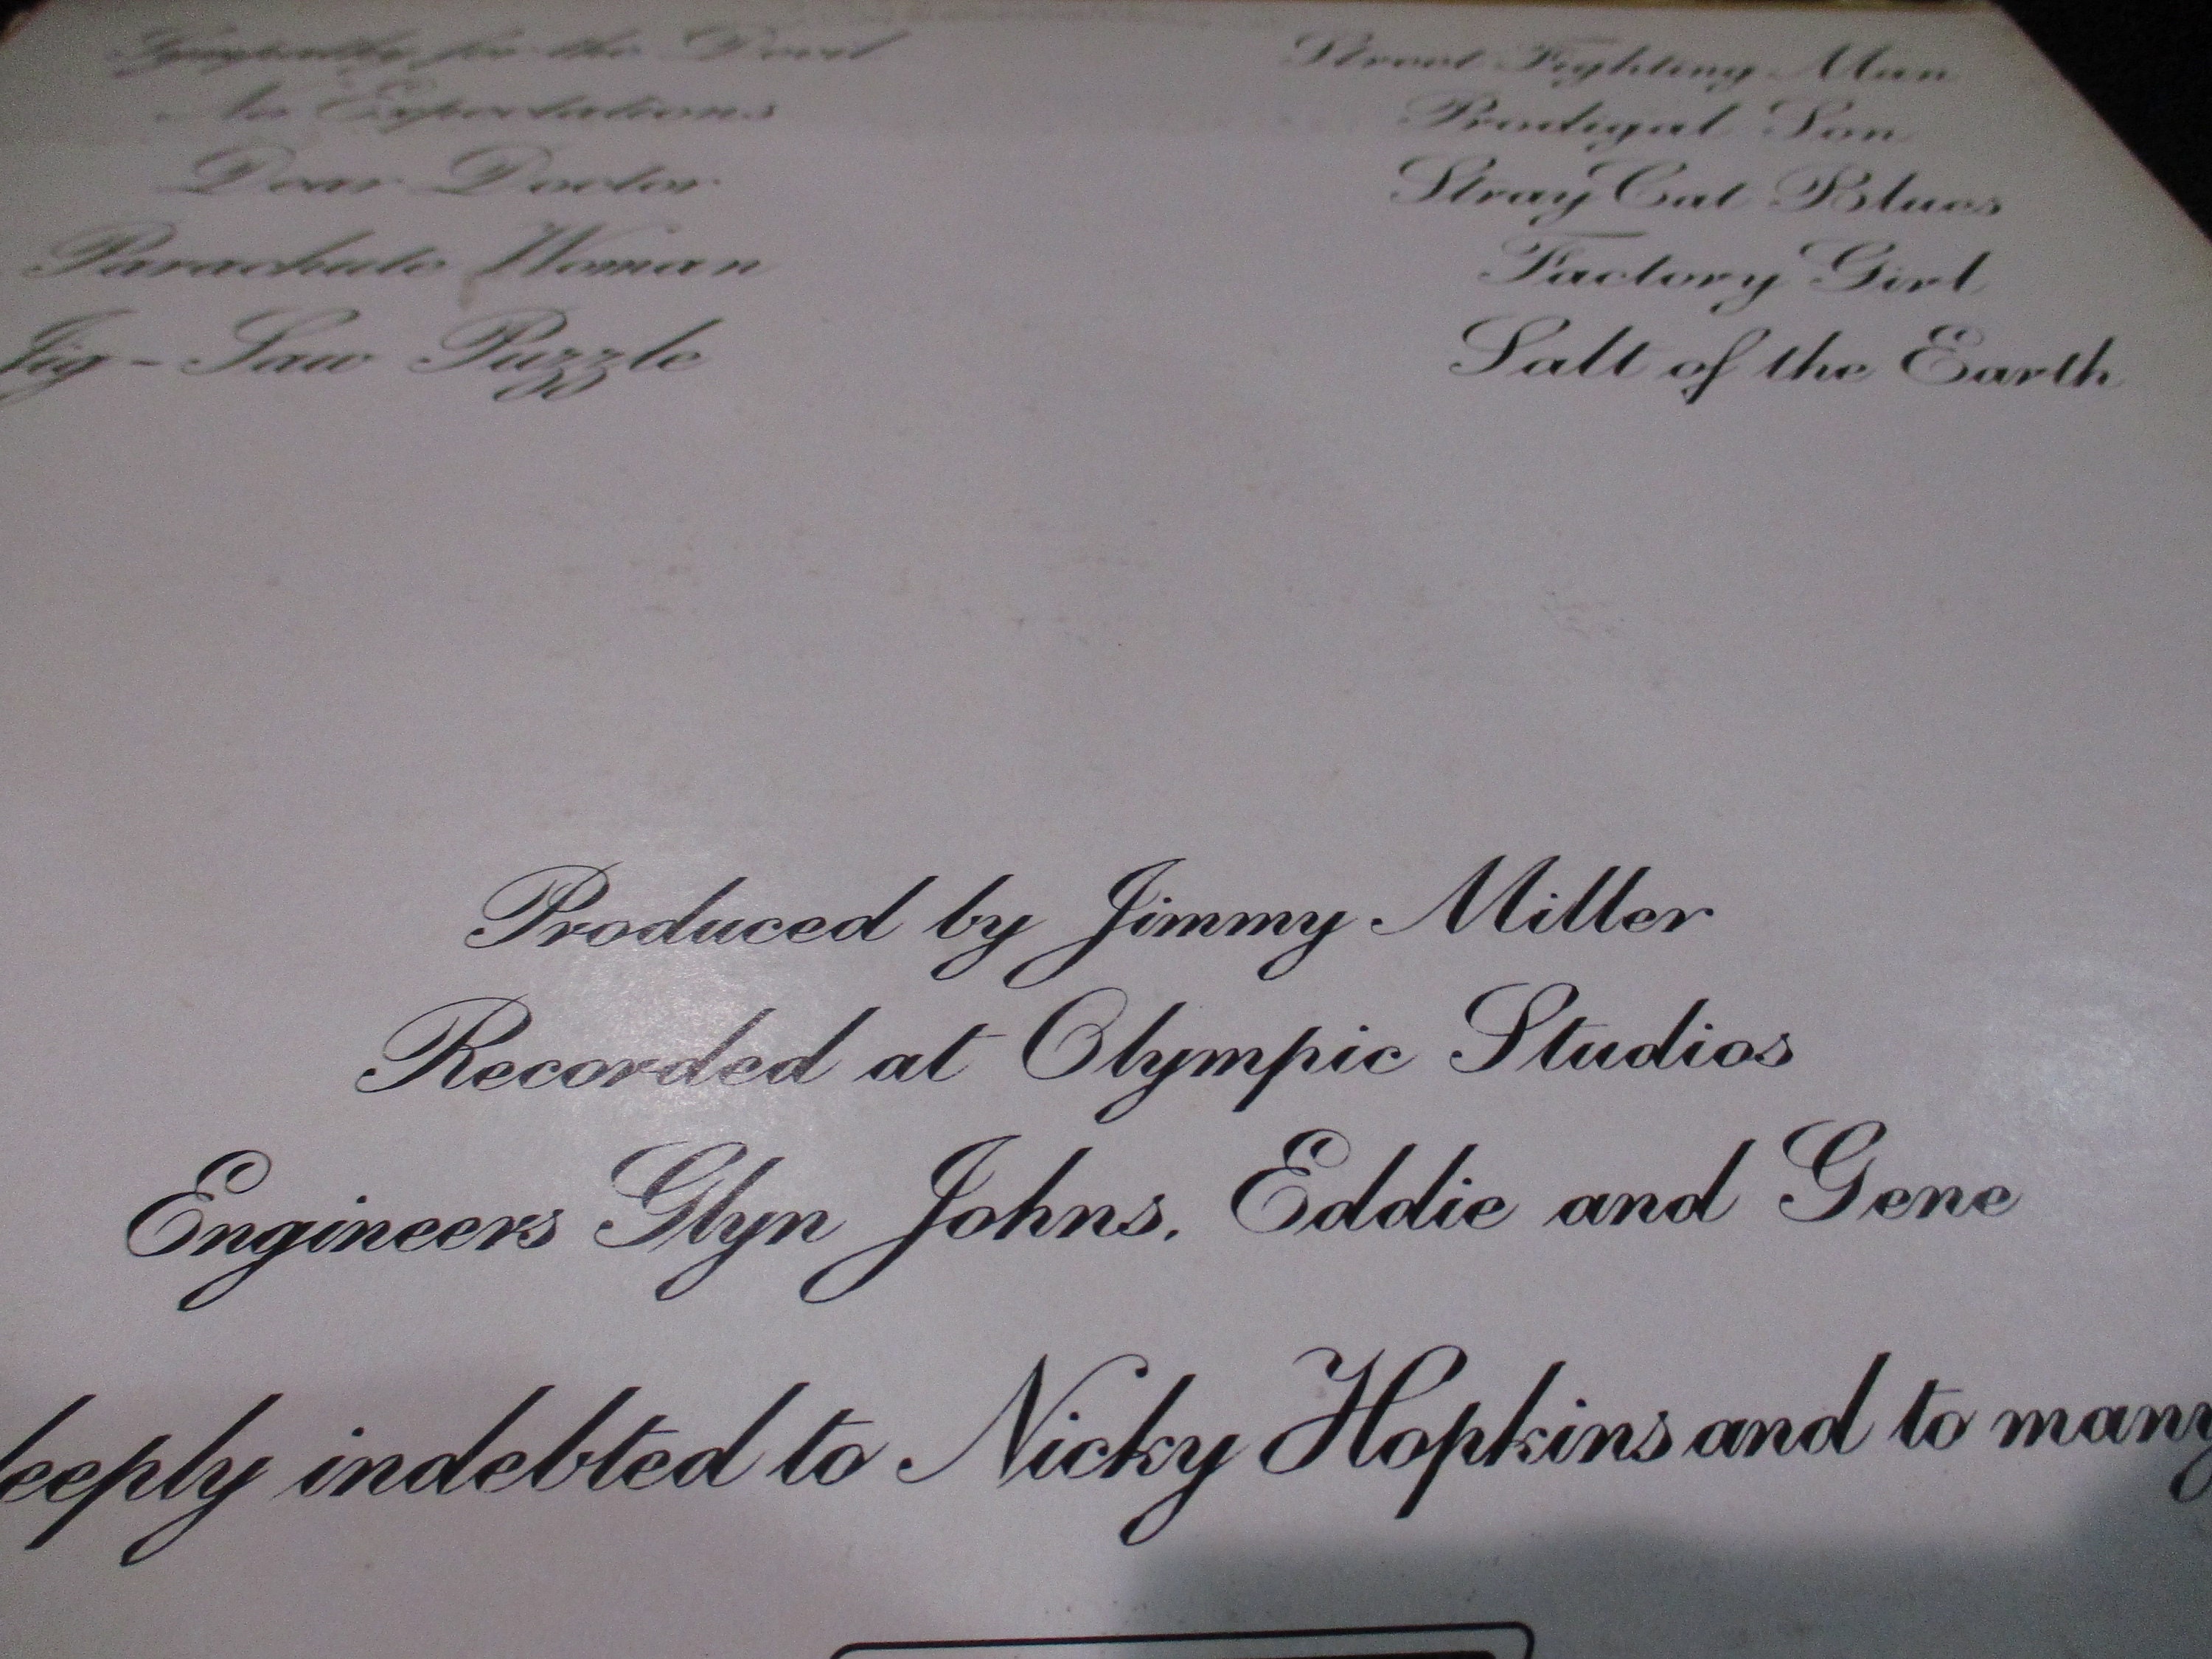 Sympathy for the Devil
No Expectations
Dear Doctor
Parachute Woman
Jig-Saw Puzzle
Street Fighting Man
Prodigal Son
Stray Cat Blues
Factory Girl
Salt of the Earth
Produced by Jimmy Miller
Recorded at Olympic Studios
Engineers Glyn Johns, Eddie and Gene
eeply indebted to Nicky Hopkins and to many